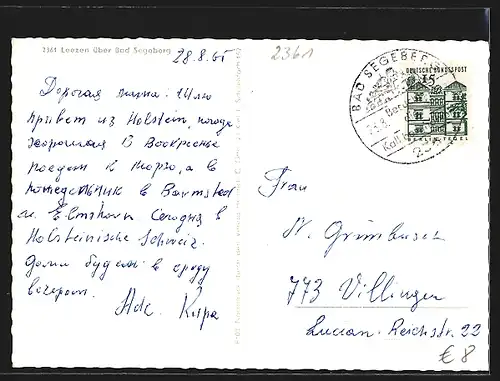 2361 Leezen über Bad Segeberg
28.8.65
2361
Дорогая мама! Шлю
привет из Holstein, погода
хорошая В Воскресенье
поедем к морю, а в
понедельник в Barmstedt
и Elmshorn Сегодня в
Holsteinische Schweiz.
Дома будем в среду
вечером.
BAD SEGEBERG
Kalk
DEUTSCHE BUNDESPOST
15
BERLIN-TEGEL
Frau
N. Grimbusch
773 Villingen
Lucian-Reichstr. 22
€ 8